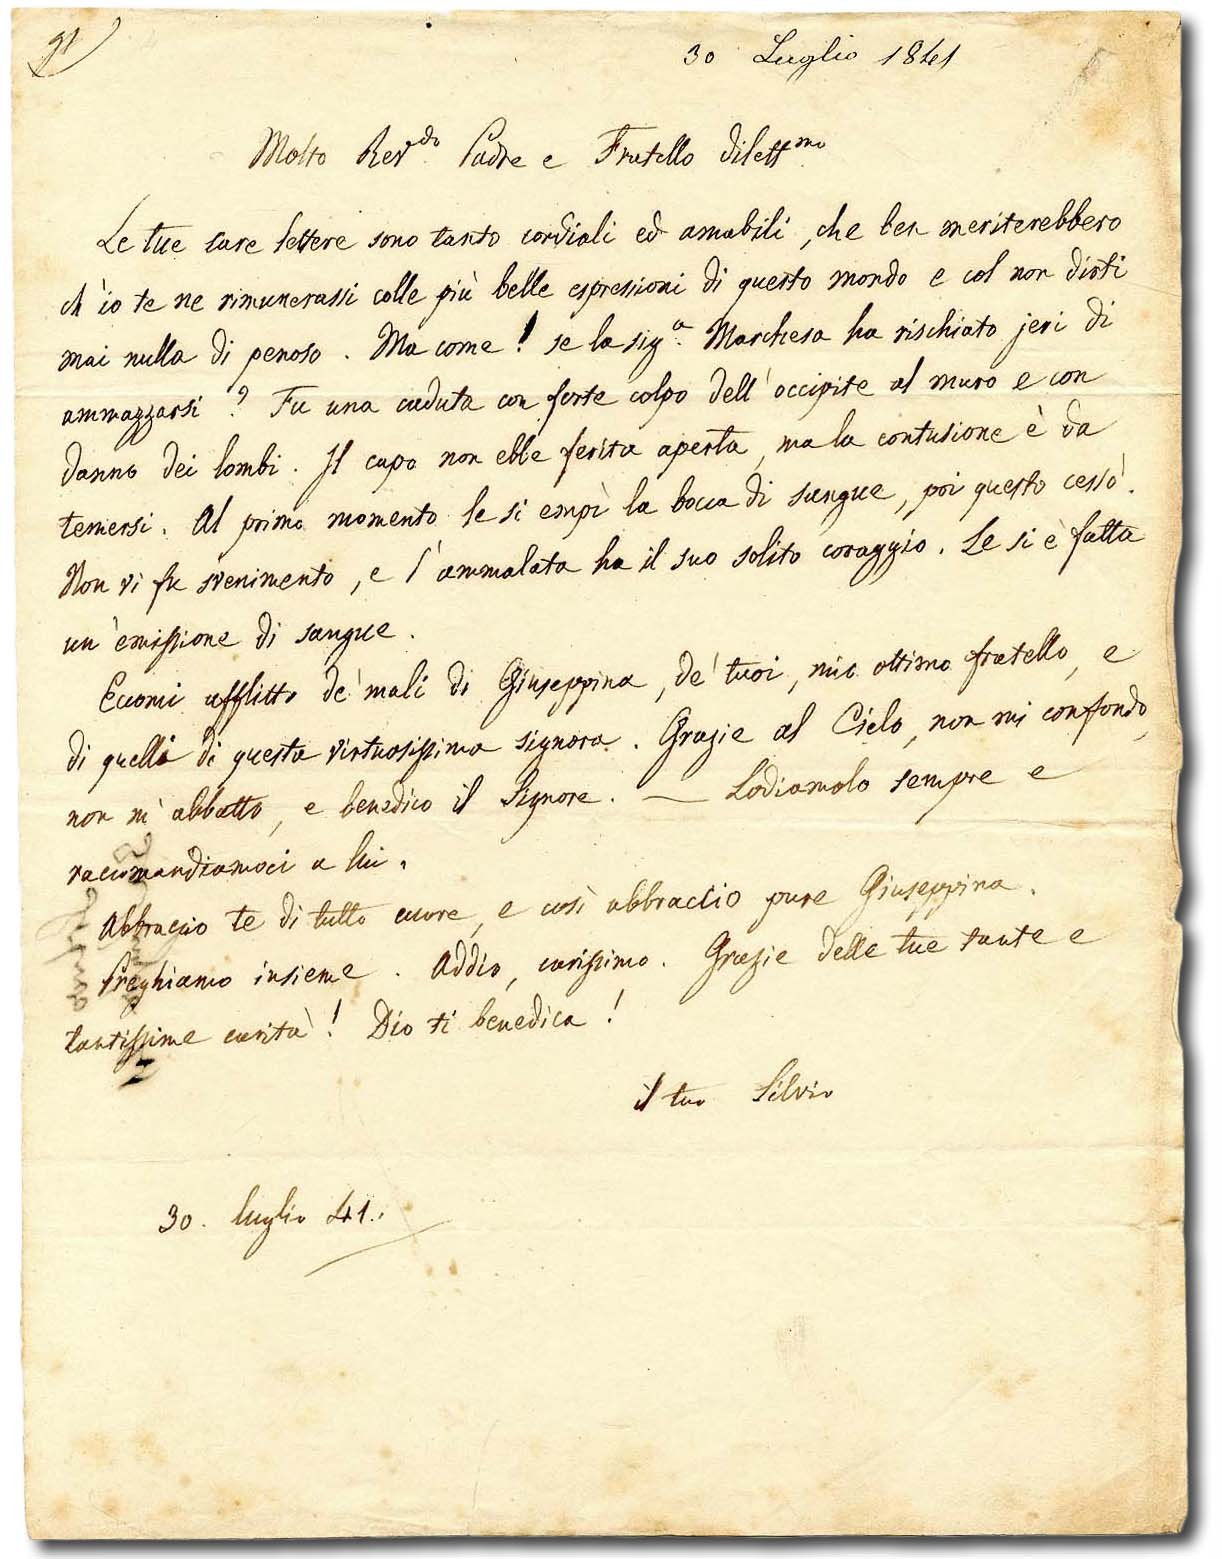 91
30 Luglio 1841
Molto Rev.do Padre e Fratello dilett.mo
Le tue care lettere sono tanto cordiali ed amabili, che ben meriterebbero
ch'io te ne rimunerassi colle più belle espressioni di questo mondo e col non dirti
mai nulla di penoso. Ma come! se la sig.a Marchesa ha rischiato jeri di
ammazzarsi? Fu una caduta con forte colpo dell'occipite al muro e con
danno dei lombi. Il capo non ebbe ferita aperta, ma la contusione è da
temersi. Al primo momento le si empì la bocca di sangue, poi questo cessò.
Non vi fu svenimento, e l'ammalata ha il suo solito coraggio. Le si è fatta
un'emissione di sangue.
Eccomi afflitto de' mali di Giuseppina, de' tuoi, mio ottimo fratello, e
di quelli di questa virtuosissima signora. Grazie al Cielo, non mi confondo,
non m'abbatto, e benedico il Signore. — Lodiamolo sempre e
raccomandiamoci a lui.
Abbraccio te di tutto cuore, e così abbraccio pure Giuseppina.
Preghiamo insieme. Addio, carissimo. Grazie delle tue tante e
tantissime carità! Dio ti benedica!
il tuo Silvio
30. luglio 41.